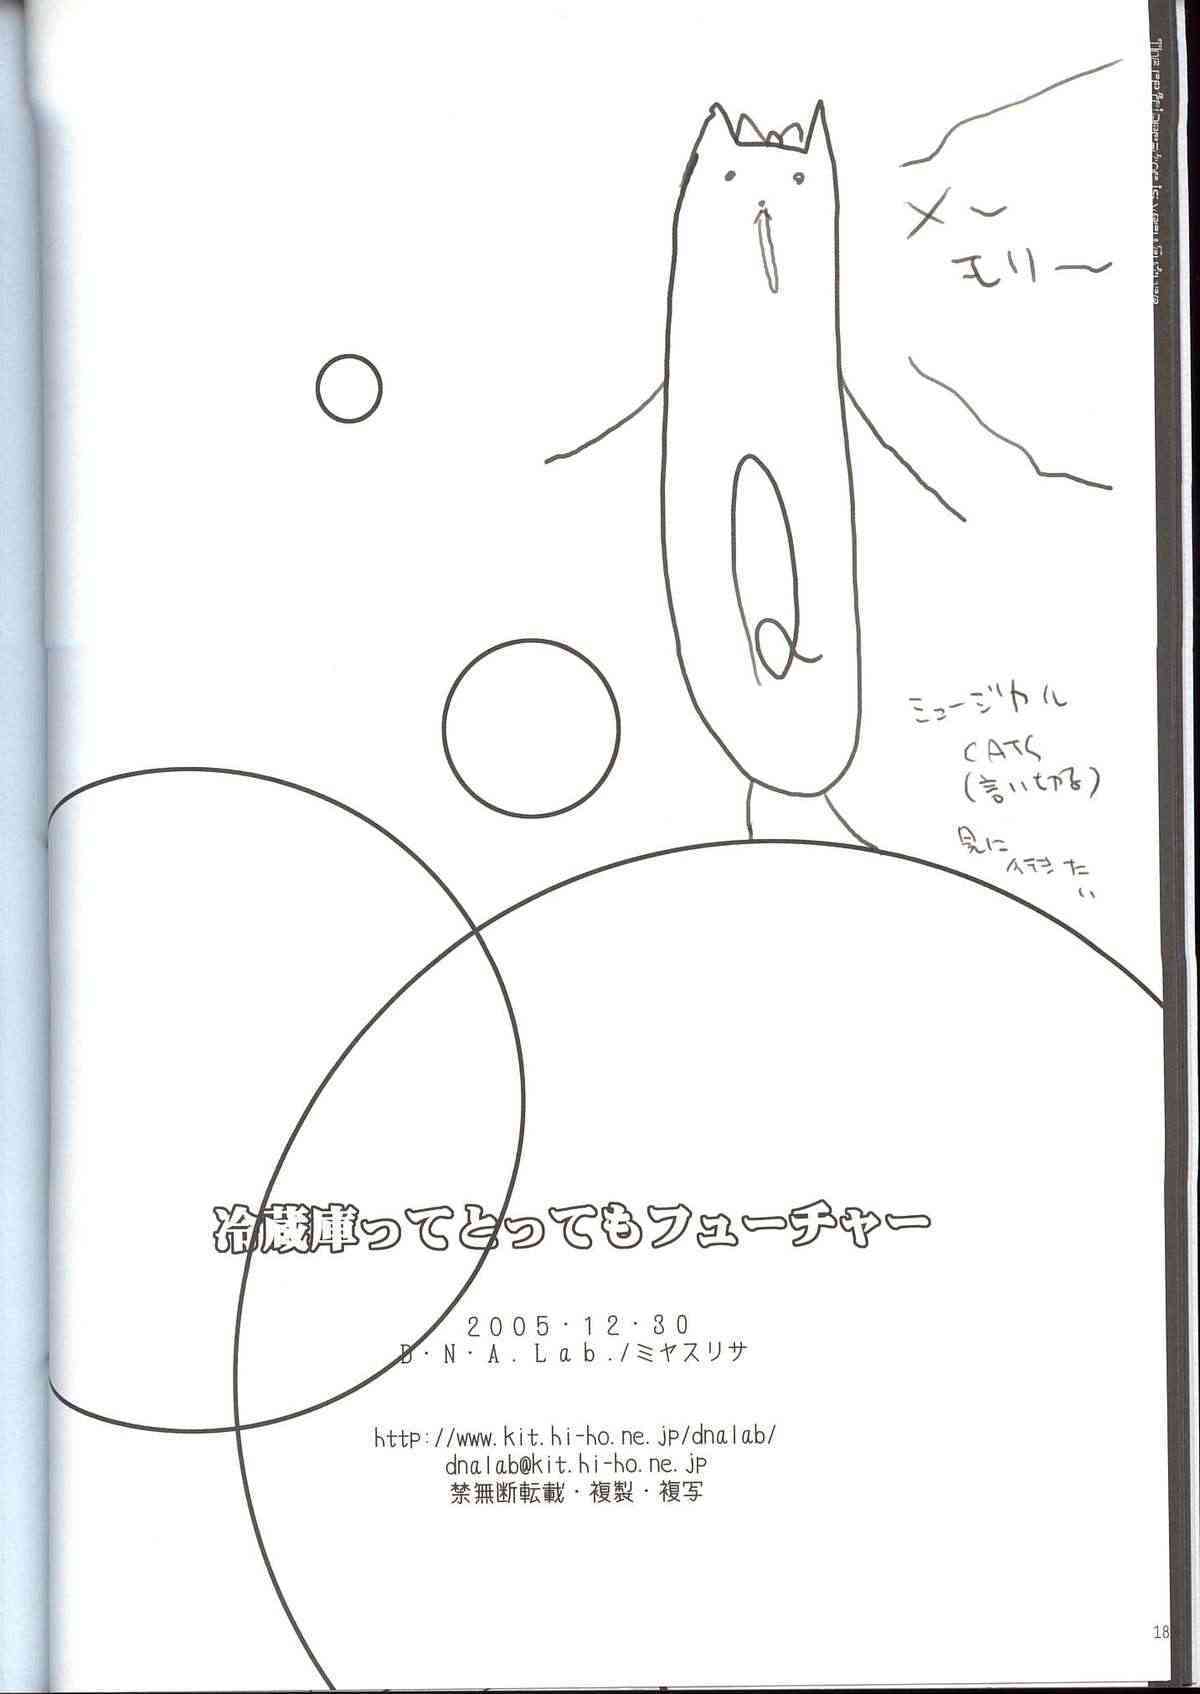 The refrigerator is very Future
メ〜
モリ〜
ミュージカル
CATS
(言い切る)
見に
行きた
い
冷蔵庫ってとってもフューチャー
2005・12・30
D・N・A.Lab./ミヤスリサ
http://www.kit.hi-ho.ne.jp/dnalab/
dnalab@kit.hi-ho.ne.jp
禁無断転載・複製・複写
18